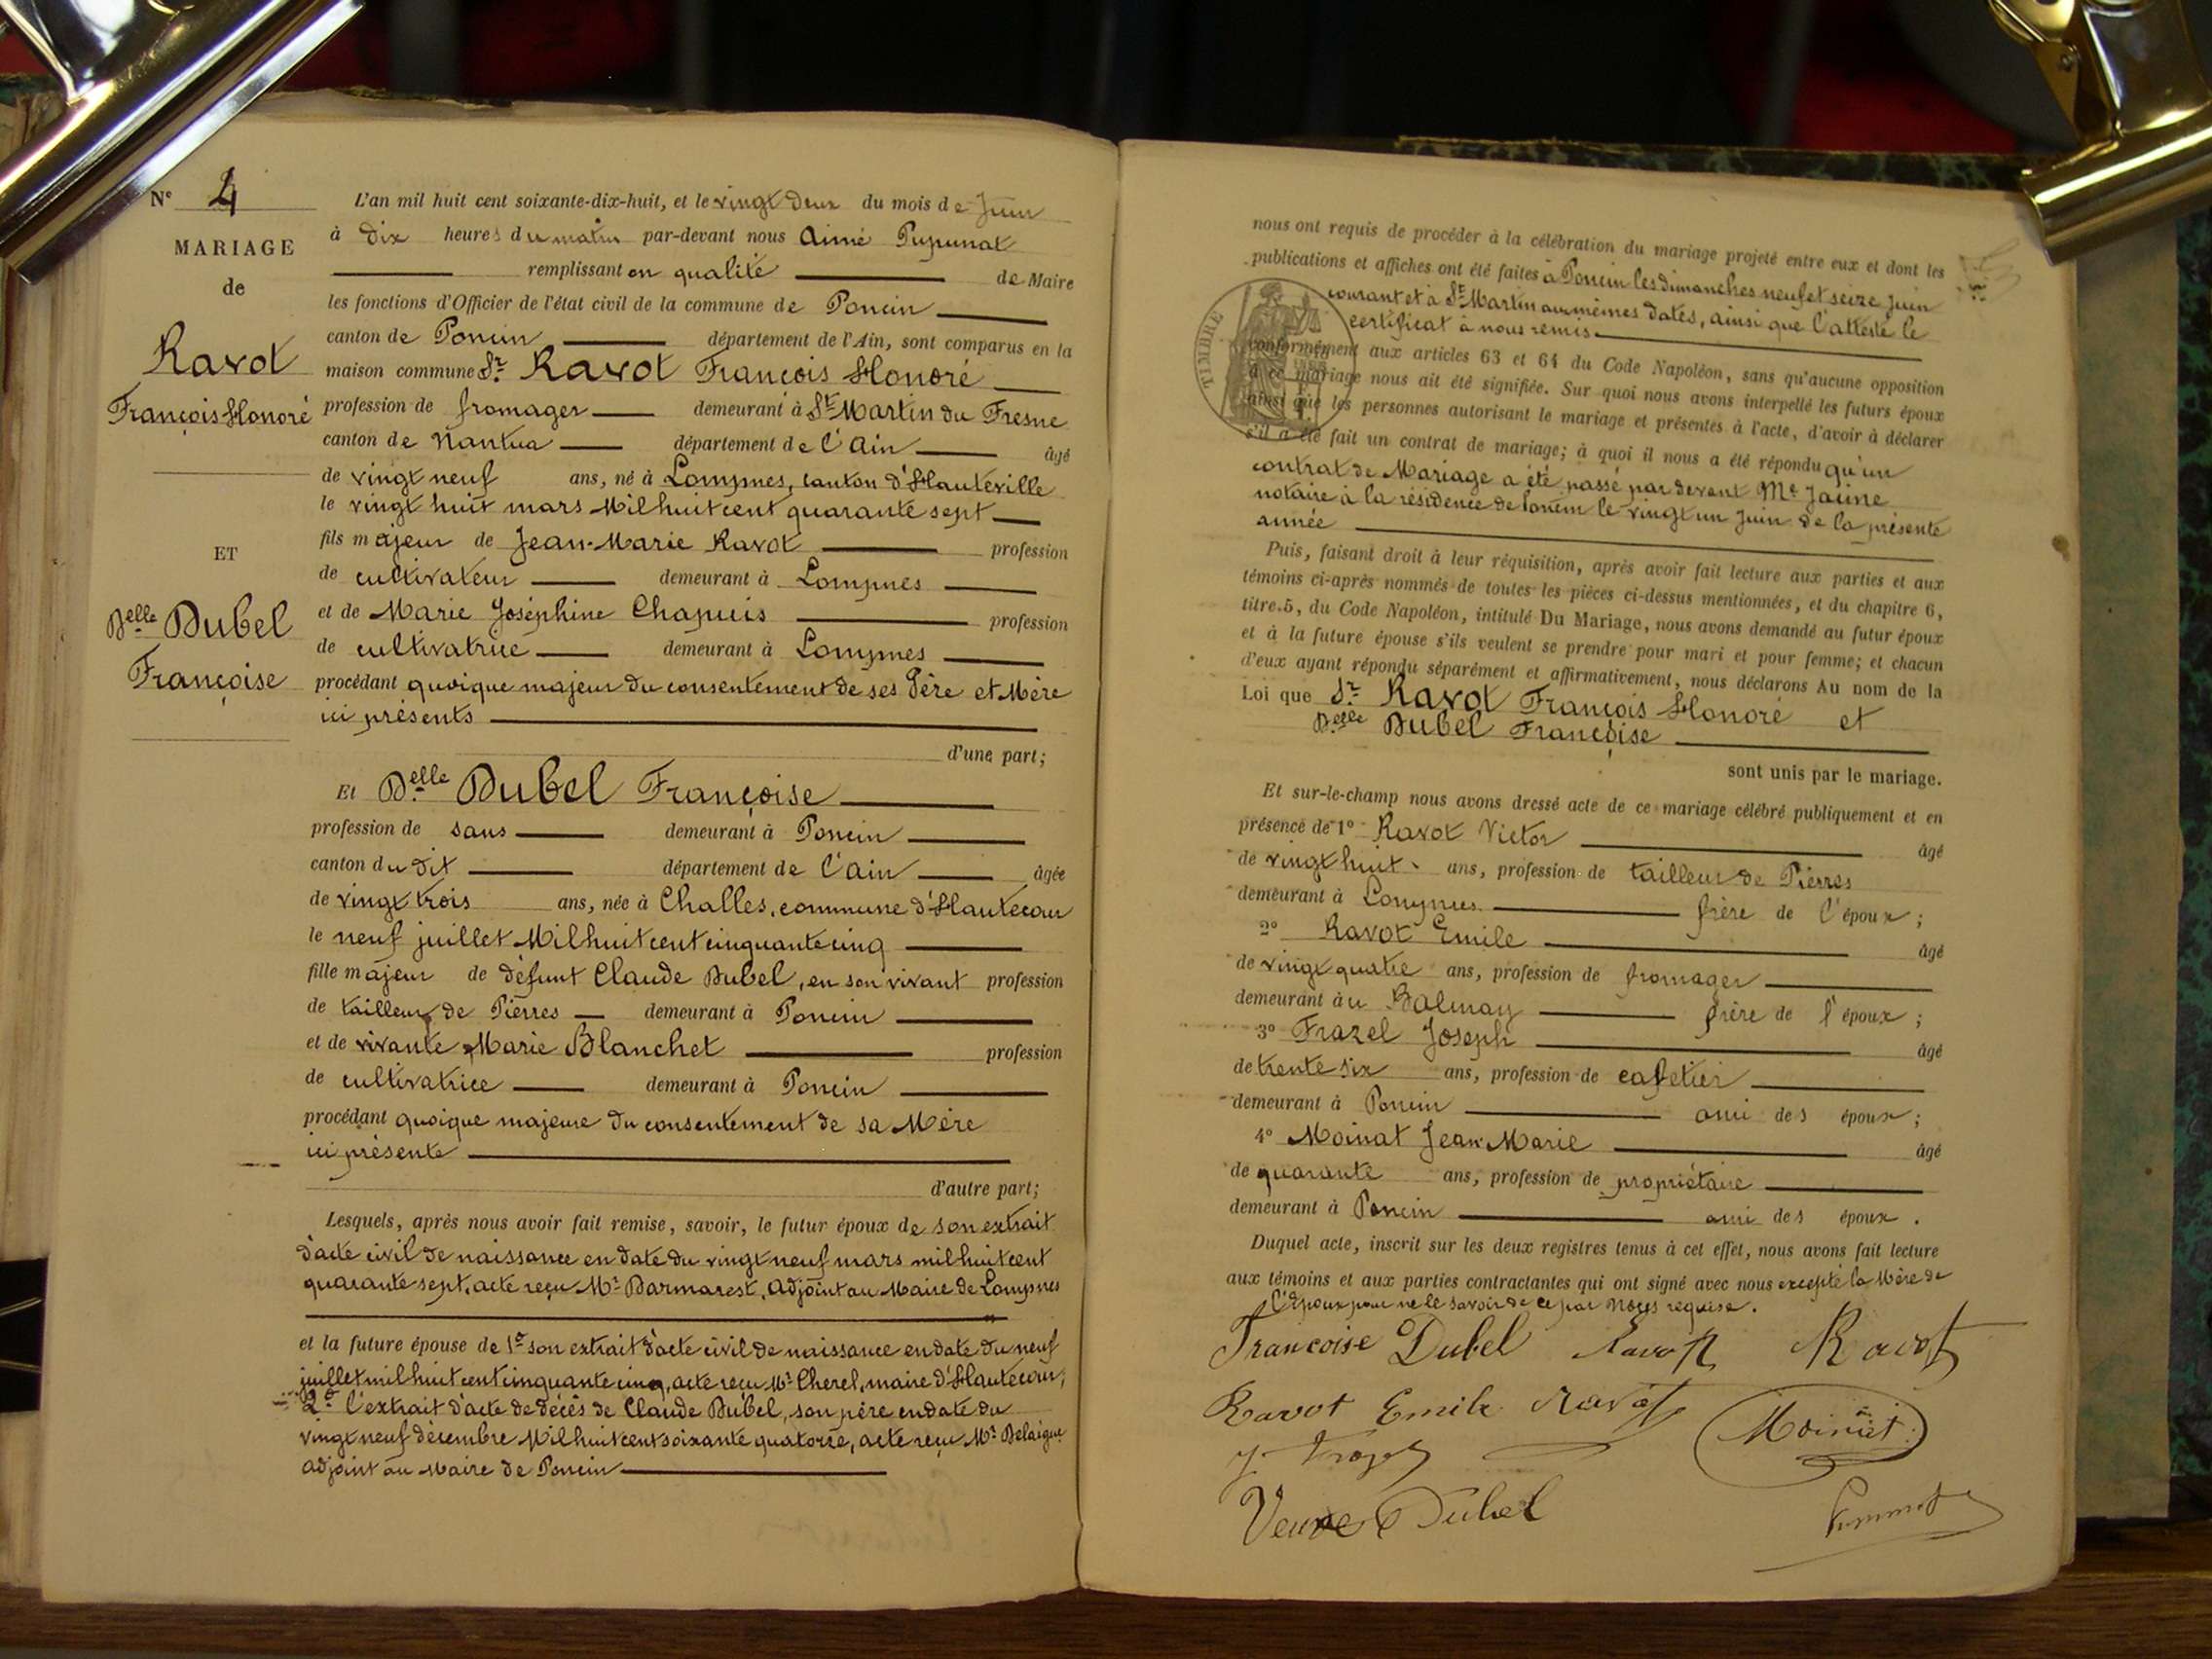 Nº 4
MARIAGE
de
Ravot
François Honoré
ET
Delle Dubel
Françoise
L'an mil huit cent soixante-dix-huit, et le vingt deux du mois de Juin
à dix heures du matin par-devant nous Aimé Pupunat
remplissant en qualité de Maire
les fonctions d'Officier de l'état civil de la commune de Poncin
canton de Poncin département de l'Ain, sont comparus en la
maison commune Sr Ravot François Honoré
profession de fromager demeurant à St Martin du Fresne
canton de Nantua département de l'Ain âgé
de vingt neuf ans, né à Lompnes, canton d'Hauteville
le vingt huit mars Mil huit cent quarante sept
fils majeur de Jean-Marie Ravot profession
de cultivateur demeurant à Lompnes
et de Marie Joséphine Chapuis profession
de cultivatrice demeurant à Lompnes
procédant quoique majeur du consentement de ses Père et Mère
ici présents
d'une part;
Et Delle Dubel Françoise
profession de sans demeurant à Poncin
canton du dit département de l'Ain âgée
de vingt trois ans, née à Challes, commune d'Hautecour
le neuf juillet Mil huit cent cinquante cinq
fille majeur de défunt Claude Dubel, en son vivant profession
de tailleur de Pierres demeurant à Poncin
et de vivante Marie Blanchet profession
de cultivatrice demeurant à Poncin
procédant quoique majeure du consentement de sa Mère
ici présente
d'autre part;
Lesquels, après nous avoir fait remise, savoir, le futur époux de son extrait
d'acte civil de naissance en date du vingt neuf mars mil huit cent
quarante sept, acte reçu Mr Darmarest, adjoint au Maire de Lompnes
et la future épouse de 1º son extrait d'acte civil de naissance en date du neuf
juillet mil huit cent cinquante cinq, acte reçu Mr Cherel, maire d'Hautecour;
2º l'extrait d'acte de décès de Claude Dubel, son père en date du
vingt neuf décembre Mil huit cent soixante quatorze, acte reçu Mr Delaigue
adjoint au Maire de Poncin
nous ont requis de procéder à la célébration du mariage projeté entre eux et dont les
publications et affiches ont été faites à Poncin les dimanches neuf et seize Juin
courant et à St Martin aux mêmes dates, ainsi que l'atteste le
certificat à nous remis
TIMBRE
conformément aux articles 63 et 64 du Code Napoléon, sans qu'aucune opposition
à ce mariage nous ait été signifiée. Sur quoi nous avons interpellé les futurs époux
ainsi que les personnes autorisant le mariage et présentes à l'acte, d'avoir à déclarer
s'il a été fait un contrat de mariage; à quoi il nous a été répondu qu'un
contrat de Mariage a été passé par devant Me Jaüne
notaire à la résidence de Poncin le vingt un Juin de la présente
année
Puis, faisant droit à leur réquisition, après avoir fait lecture aux parties et aux
témoins ci-après nommés de toutes les pièces ci-dessus mentionnées, et du chapitre 6,
titre.5, du Code Napoléon, intitulé Du Mariage, nous avons demandé au futur époux
et à la future épouse s'ils veulent se prendre pour mari et pour femme; et chacun
d'eux ayant répondu séparément et affirmativement, nous déclarons Au nom de la
Loi que Sr Ravot François Honoré et
Delle Dubel Françoise
sont unis par le mariage.
Et sur-le-champ nous avons dressé acte de ce mariage célébré publiquement et en
présence de 1º Ravot Victor âgé
de vingt huit ans, profession de tailleur de Pierres
demeurant à Lompnes frère de l'époux;
2º Ravot Emile âgé
de vingt quatre ans, profession de fromager
demeurant àu Balmay frère de l'époux;
3º Frazel Joseph âgé
de trente six ans, profession de cafetier
demeurant à Poncin ami des époux;
4º Moinat Jean Marie âgé
de quarante ans, profession de propriétaire
demeurant à Poncin ami des époux.
Duquel acte, inscrit sur les deux registres tenus à cet effet, nous avons fait lecture
aux témoins et aux parties contractantes qui ont signé avec nous excepté la Mère de
l'Epoux pour ne le savoir de ce par Nous requise.
Francoise Dubel Ravot Ravot
Ravot Emile Ravot Moinat
Veuve Dubel